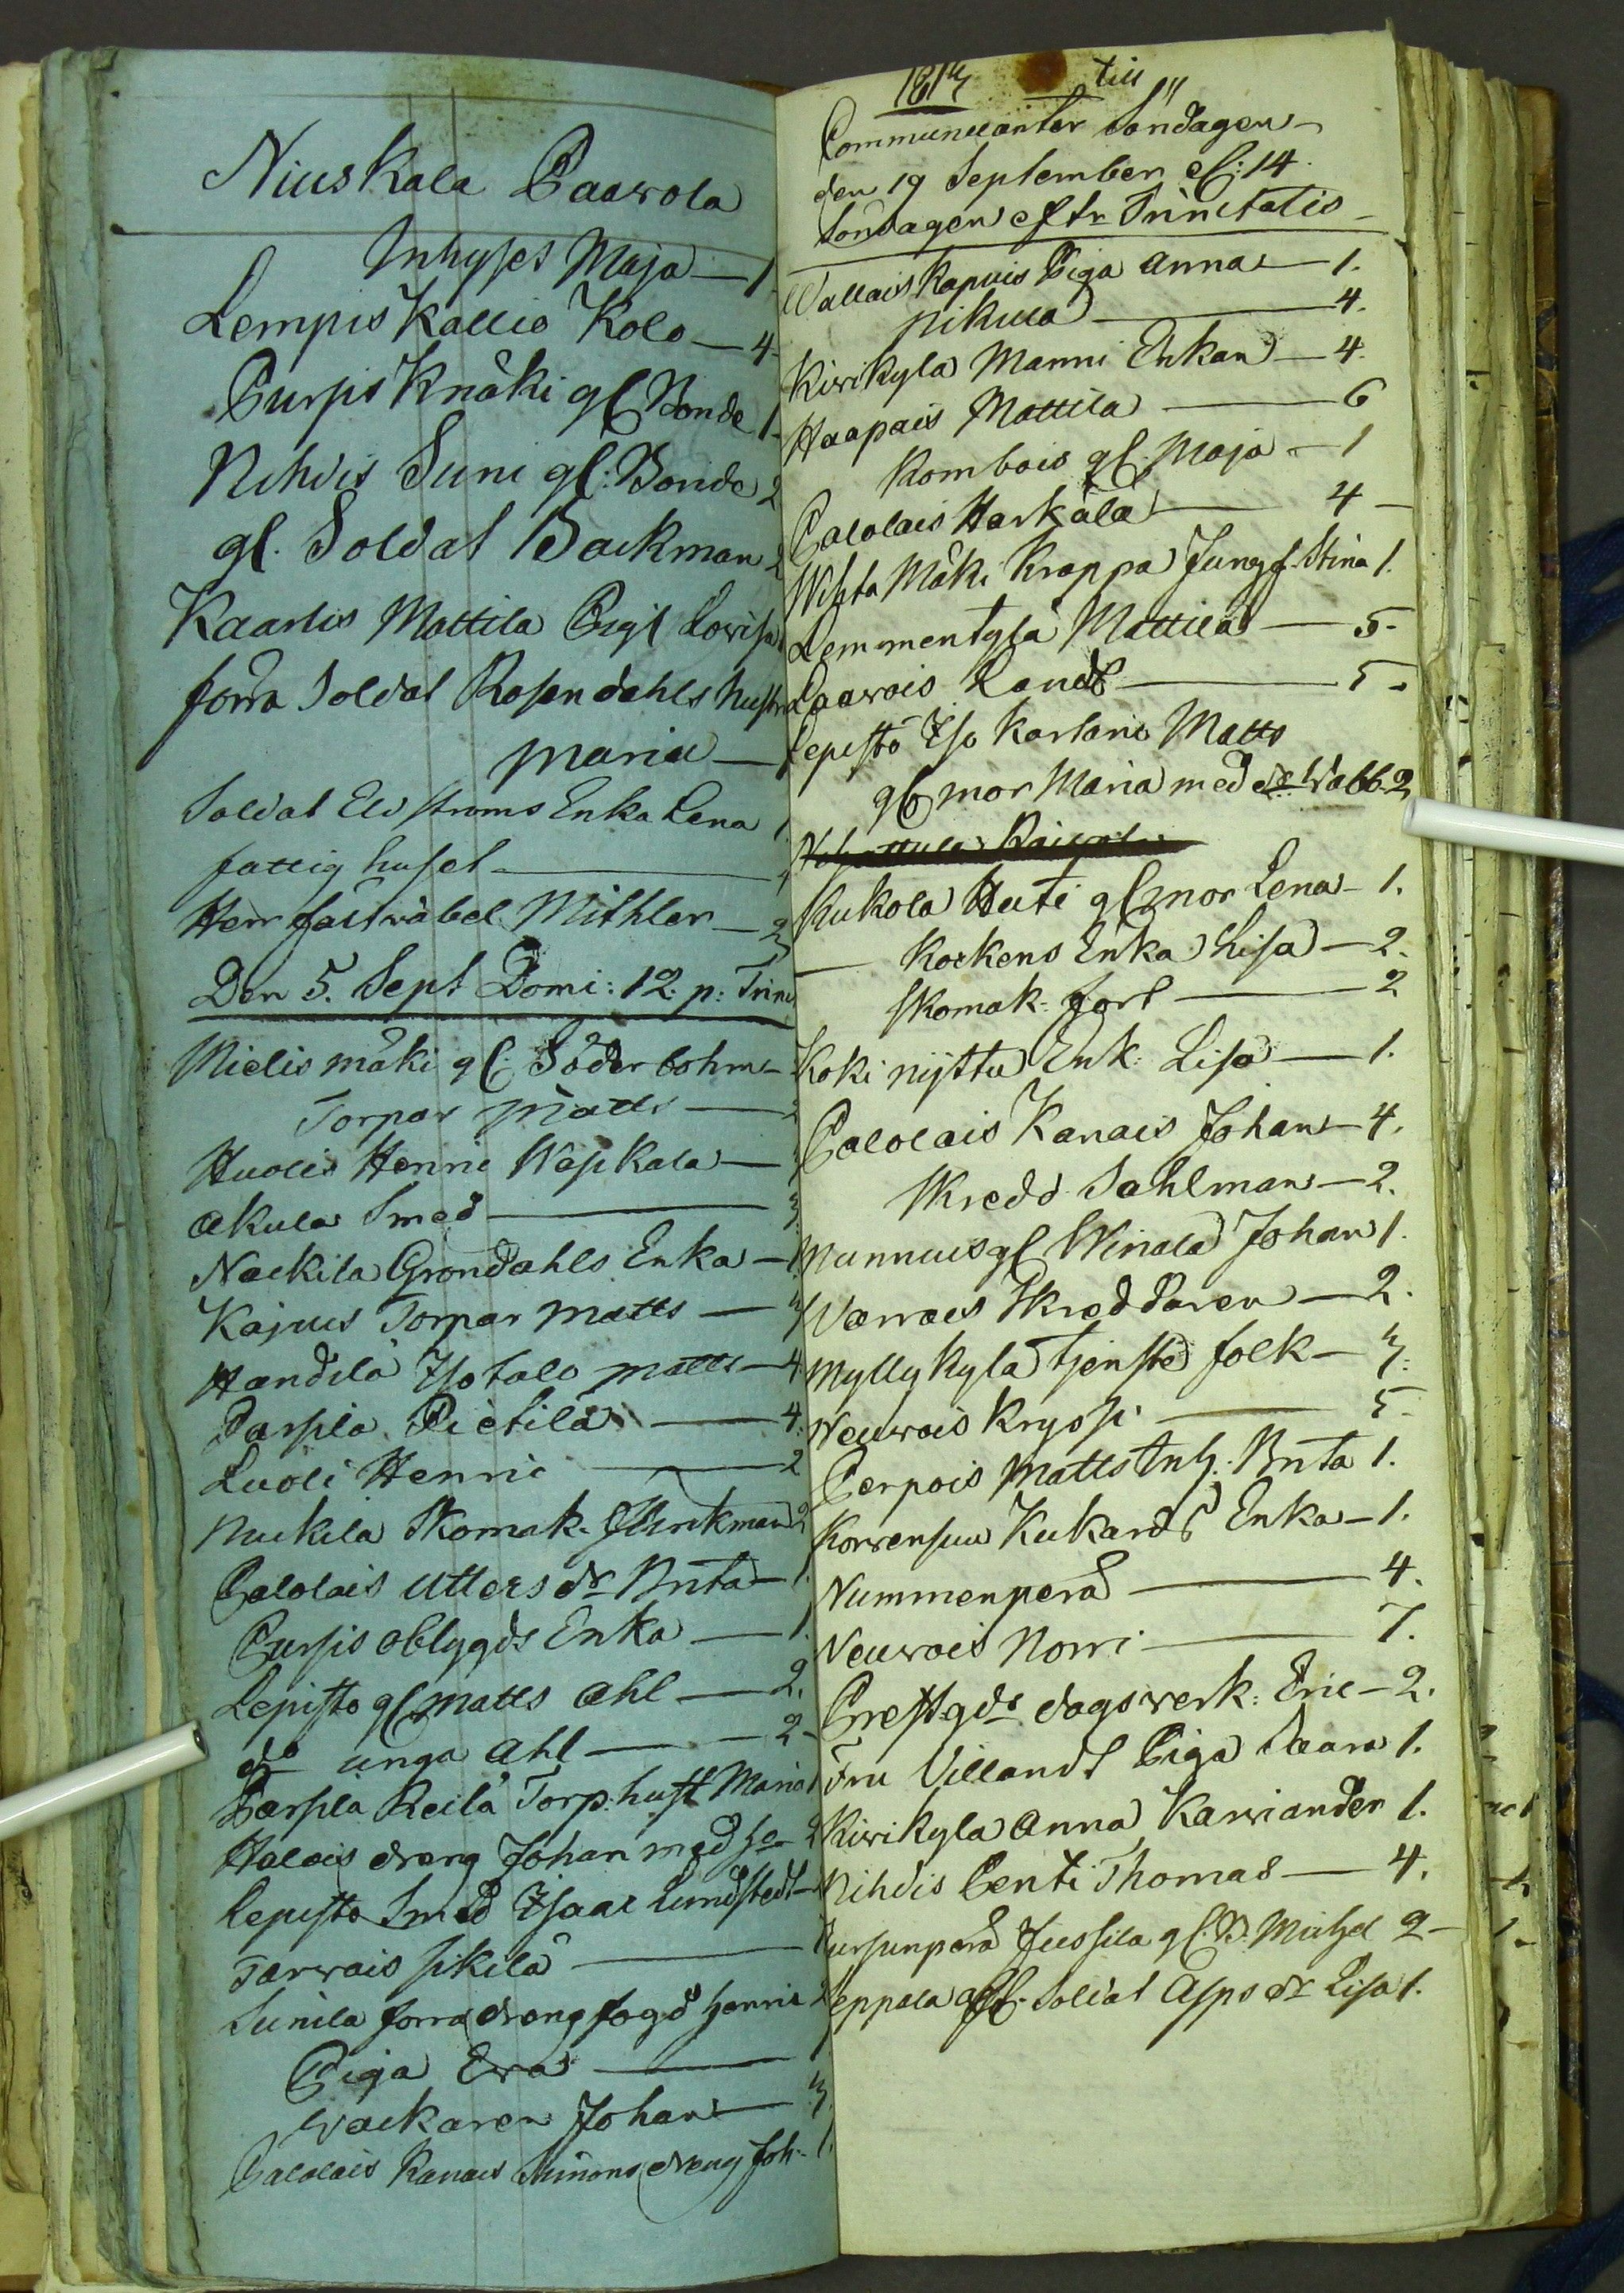 Niuskala Paavola
Inhyses Maja — 1
Lempis Kallio Kolo — 4
Purpis Knäki gl Bonde 1
Nihdis Suni gl: Bonde 2
gl. Soldat Backman 2
Kaarlis Mattila Pigl Lovisa
förra Soldat Rosendahls hustru
Maria — 1
Soldat Elvströms Enka Lena 1
fattighuset —
Herr Mithler — 3
Den 5. Sept Domi: 12. p: Trini
Mielismäki gl: Söderbohm —
Torpar Matts — 2
Huolis Henric Wäskala —
Akula Smed — 3
Nackila Gröndahls Enka — 1
Kajuis Torpar Matts — 3
Handila Isotalo Matts — 4
Parsila Pietilä — 4
Luoli Henric — 2
Nuckila Skomak. Flinkman 2
Palolais Utters dr Brita — 1
Pursis Oblygds Enka — 1
Lepistö gl Matts Ahl — 2
do unga Ahl — 2
Parsila Reilä Torp. hust Maria 1
Halois dräng Johan med h 2
Lepistö Smed Isaac Lundstedt —
Tarvais Sikilä —
Sunila förra drängfogd Henric 2
Piga Eva — 1
Wäckaren Johan — 3
Palolais Kanais Simons dräng Joh. 1.
1813 till
Communicanter Söndagen
den 19 September el: 14
Söndagen eftr Trinitatis
Wallais Kapuis Piga Anna — 1.
pikula — 4.
Kirikyla Manni Enkan — 4.
Haapais Mattila — 6
Kombois gl: Maja — 1
Palolais Harkälä — 4
Wihta Mäki Krappa Jungf. Stina 1.
Lemmentylä Mattila — 5.
Laavois Landt — 5.
Lepistö Iso Karlano Matts
gl mor Maria med de Wabb. 2
Kukola Heuti gl mor Lena — 1.
Kockens Enka Lisa — 2.
Skomak. Fort — 2
Kokinijttu Enk: Lisa — 1.
Palolais Kanais Johan — 4.
Skredd Sahlman — 2.
Munnuis gl Winala Johan 1.
Warrais Skreddaren — 2.
Myllykyla tjenste folk — 3.
Neuvois Kryssi — 5
Perpois Matts Inh: Brita 1.
Korvensuu Kukards Enka — 1.
Nummenperä — 4.
Neuvois Norri — 7.
Prestgds dagsverk: Eric — 2.
Fru Villandt Piga Saara 1.
Kirikyla Anna Karviander 1.
Nihdis Penti Thomas — 4.
Kursunperä Jussila gl. B. Michel 2 —
Seppala afl. Soldat Asps dr Lisa 1.